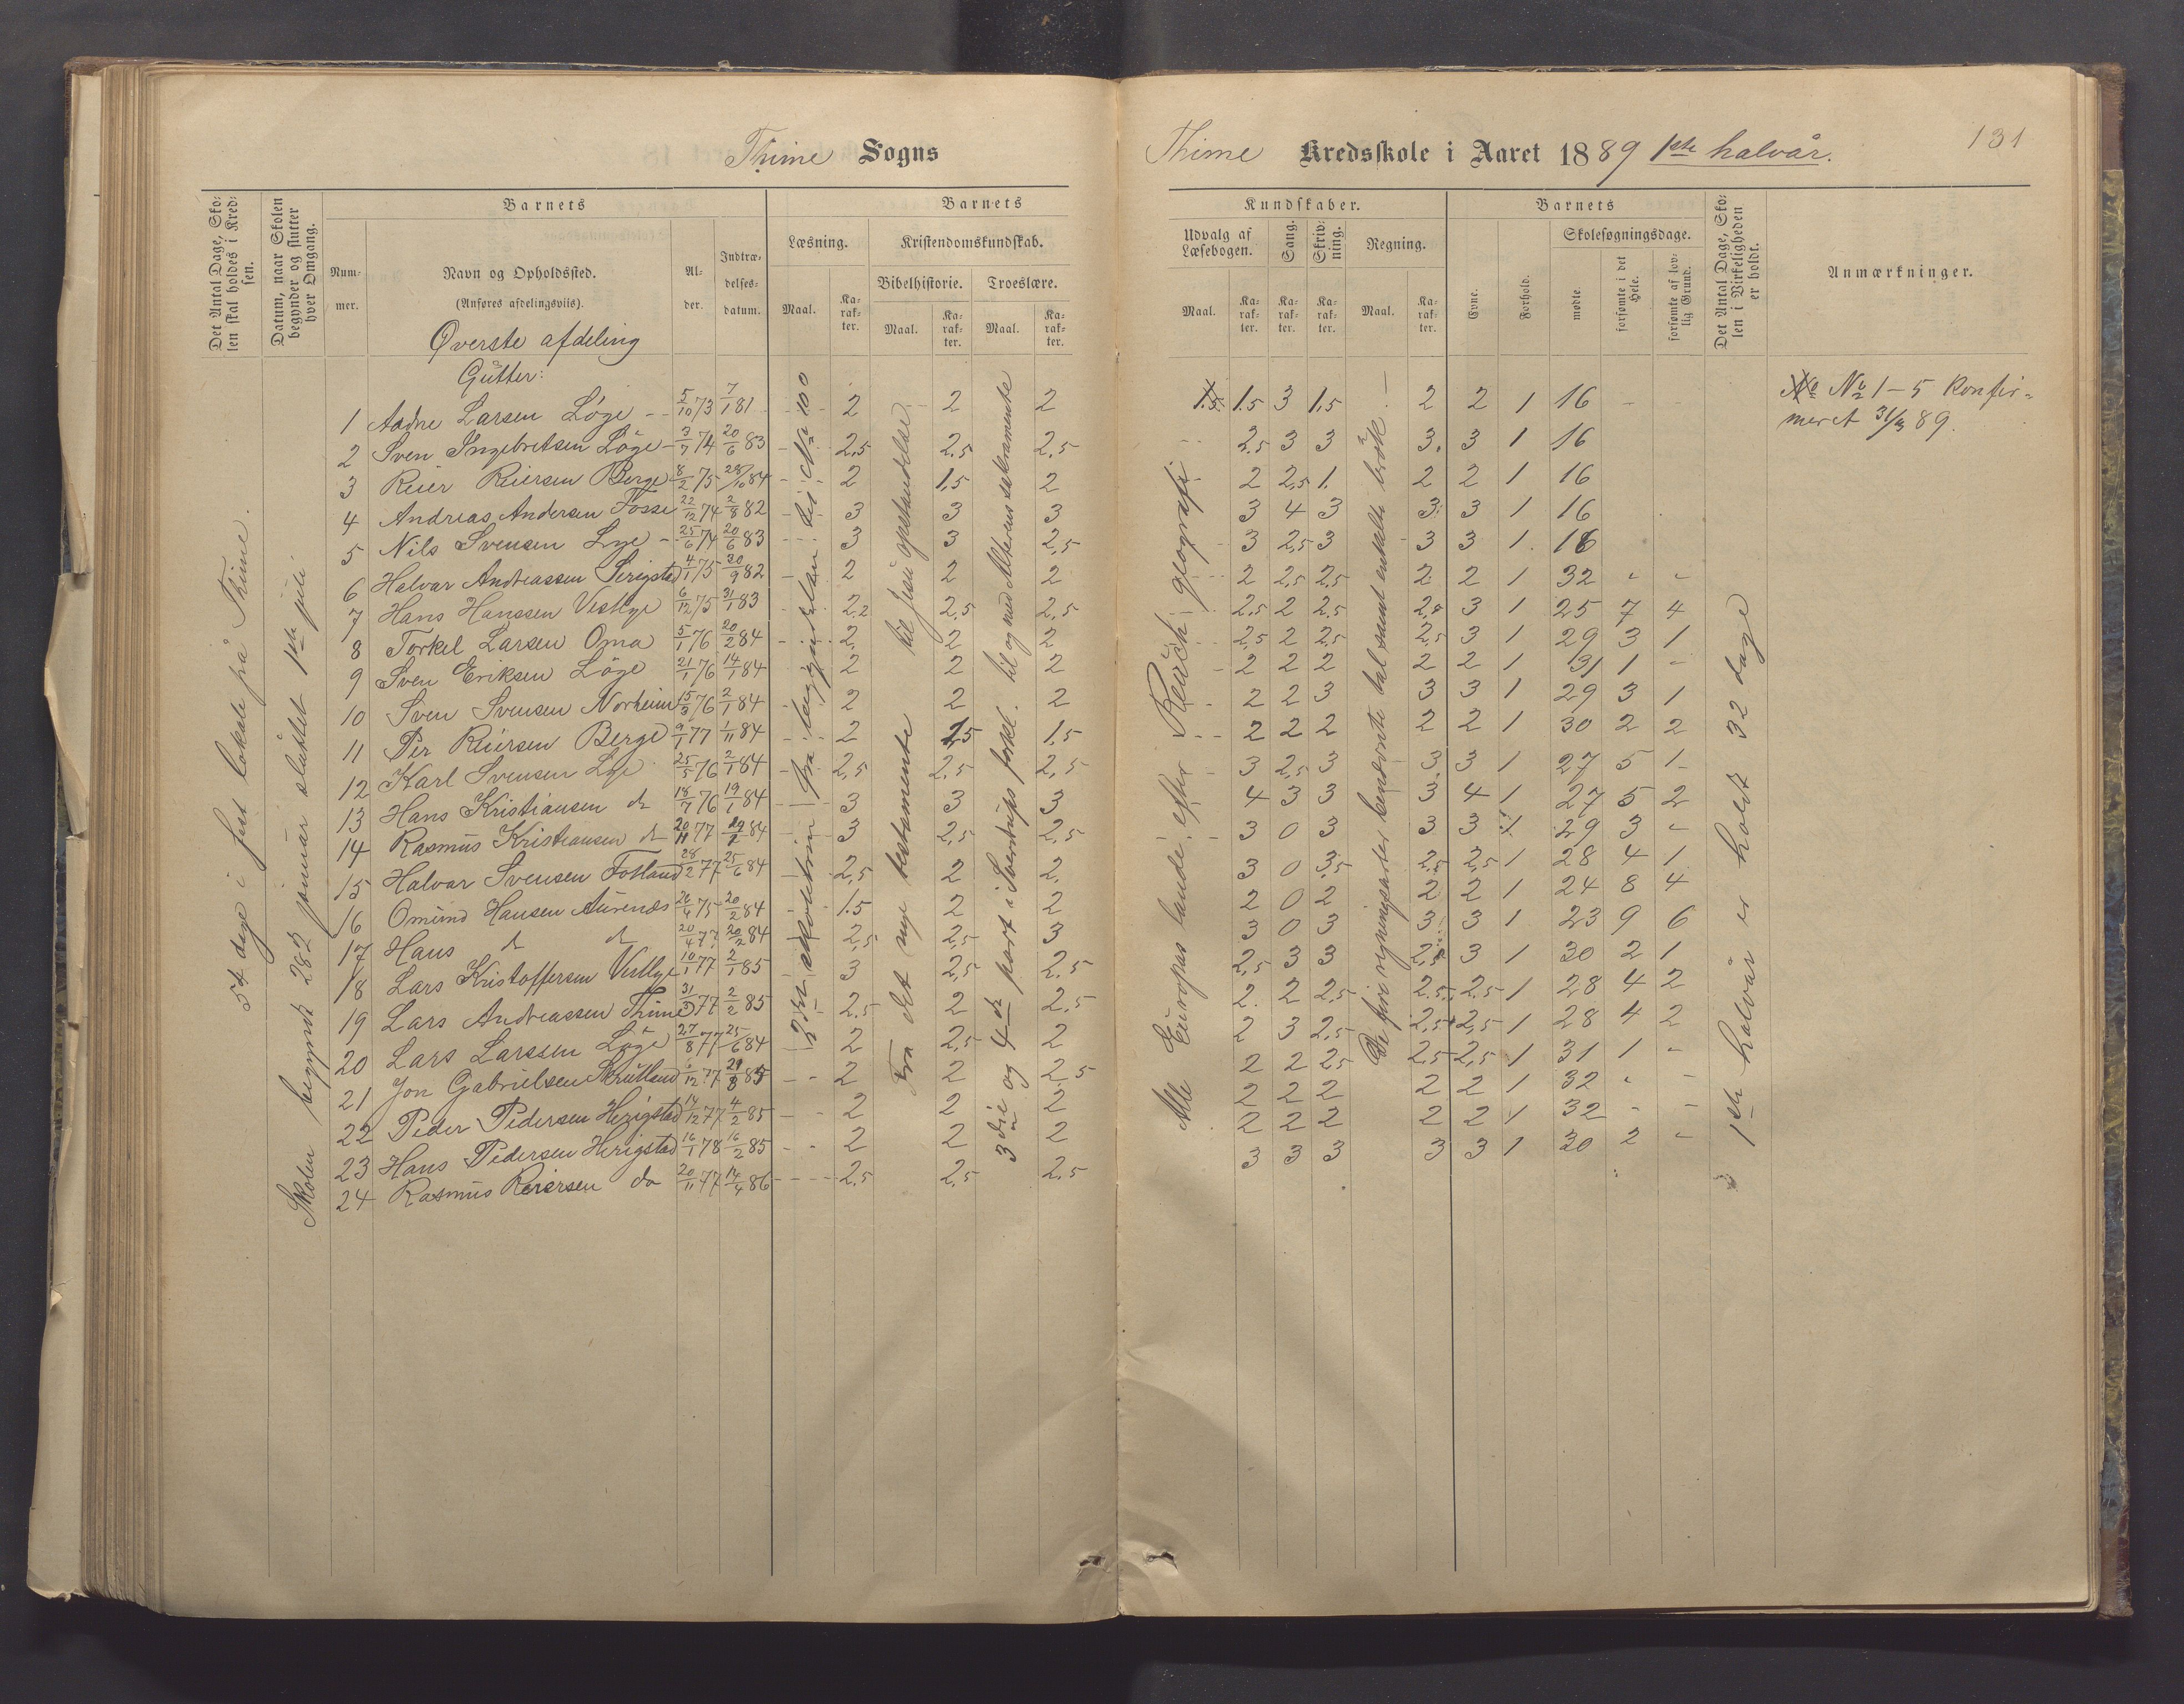 Thime Sogns
Det Antal Dage, Skolen skal holdes i Kredsen.
Datum, naar Skolen begynder og slutter hver Omgang.
Barnets
Nummer.
Navn og Opholdssted.
(Anføres afdelingsviis).
Alder.
Indtrædelsesdatum.
Barnets
Læsning.
Maal.
Karakter.
Kristendomskundskab.
Bibelhistorie.
Maal.
Karakter.
Troeslære.
Maal.
Karakter.
Øverste afdeling
Gutter:
54 dage i fast lokale på Thime.
Skolen begyndt 28de januar sluttet 1ste juli
1 Aadne Larsen Löge 5/10 73 7/1 81 2 2 2
2 Sven Ingebretsen Löge 3/7 74 20/6 83 2,5 2,5 2,5
3 Reier Reiersen Berge 8/2 75 28/10 84 2 1,5 2
4 Andreas Andersen Fosse 22/12 74 2/8 82 3 3 3
5 Nils Svensen Lye 25/6 74 20/6 83 3 3 2,5
6 Halvar Andreassen Serigstad 4/1 75 30/9 82 2 2 2
7 Hans Hanssen Vestlye 6/12 75 31/1 83 2,2 2,5 2,5
8 Torkel Larsen Oma 5/1 76 20/2 84 2 2 2
9 Sven Eriksen Löge 21/1 76 14/1 84 2 2 2
10 Sven Svensen Norheim 15/3 76 2/1 84 2 2 2
11 Per Reiersen Berge 9/1 77 1/11 84 2 1,5 1,5
12 Karl Svensen Lye 25/5 76 2/1 84 2,5 2,5 2,5
13 Hans Kristiansen do 18/7 76 19/1 84 3 3 3
14 Rasmus Kristiansen do 20/11 77 84 3 2,5 2,5
15 Halvar Svensen Fotland 28/2 77 25/6 84 2,5 2 2
16 Omund Hansen Aurenæs 26/4 75 20/2 84 1.5 2 2
17 Hans do do 20/4 77 20/2 84 2,5 2,5 3
18 Lars Kristoffersen Vestlye 10/1 77 2/1 85 3 2,5 2,5
19 Lars Andreassen Thime 31/3 77 2/2 85 2,5 2 2,5
20 Lars Larssen Löge 27/8 77 25/6 84 2 2,5 2
21 Jon Gabrielsen Skrutland 6/12 77 85 2 2 2,5
22 Peder Pedersen Herigstad 14/12 77 4/2 85 2 2 2
23 Hans Pedersen Herigstad 16/1 78 16/2 85 2 2 2
24 Rasmus Reiersen do 20/11 77 14/4 86 2,5 2,5 2,5
3die skoletrin fra begyndelsen til No 100
Fra det nye testamente til Jesu opstandelse
3die og 4de part i Sverdrups forkl. til og med Alterens sakramente
Thime Kredsskole i Aaret 1889 1ste halvår.
131
Kundskaber.
Udvalg af Læsebogen.
Maal.
Karakter.
Sang.
Karakter.
Skrivning.
Karakter.
Regning.
Maal.
Karakter.
Barnets
Evne.
Forhold.
Skolesøgningsdage.
mødte.
forsømte i det Hele.
forsømte af lovlig Grund.
Det Antal Dage, Skolen i Virkeligheden er holdt.
Anmærkninger.
1.5 1.5 3 1,5 2 2 1 16
2,5 3 3 3 3 1 16
2 2,5 1. 2 2 1 16
3 4 3 3 3 1 16
3 2,5 3 3 3 1 16
2 2,5 2,5 2 2 1 32 - -
2,5 2 2,5 2,5 3 1 25 7 4
2,5 2 2,5 2,5 3 1 29 3 1
2 2 2 2 2 1 31 1 -
2 2 3 3 3 1 29 3 1
2 2 2 2 2 1 30 2 2
3 2,5 3 3 3 1 27 5 1
4 3 3 3 4 1 27 5 2
3 0 3 3 3 1 29 3 -
3 0 3,5 2,5 2,5 1 28 4 1
2 0 2 2 2 1 24 8 4
3 0 3 3 3 1 23 9 6
2,5 3 3 2,5 3 1 30 2 1
2. 2 2,5 2,5 2,5 1 28 4 2
2 3 2,5 2,5 2,5 1 28 4 2
2 2 2,5 2,5 2,5 1 31 1 -
2 2 2 2 2 1 32 - -
2 2 2 2 2 1 32 - -
3 3 3 3 3 1 30 2 -
Alle Europas lande efter Reusch geografi
De fire regningsarter benævnte tal samt enkelte brök.
1ste halvår er holdt 32 dage
No 1-5 konfirmeret 31/3 89.